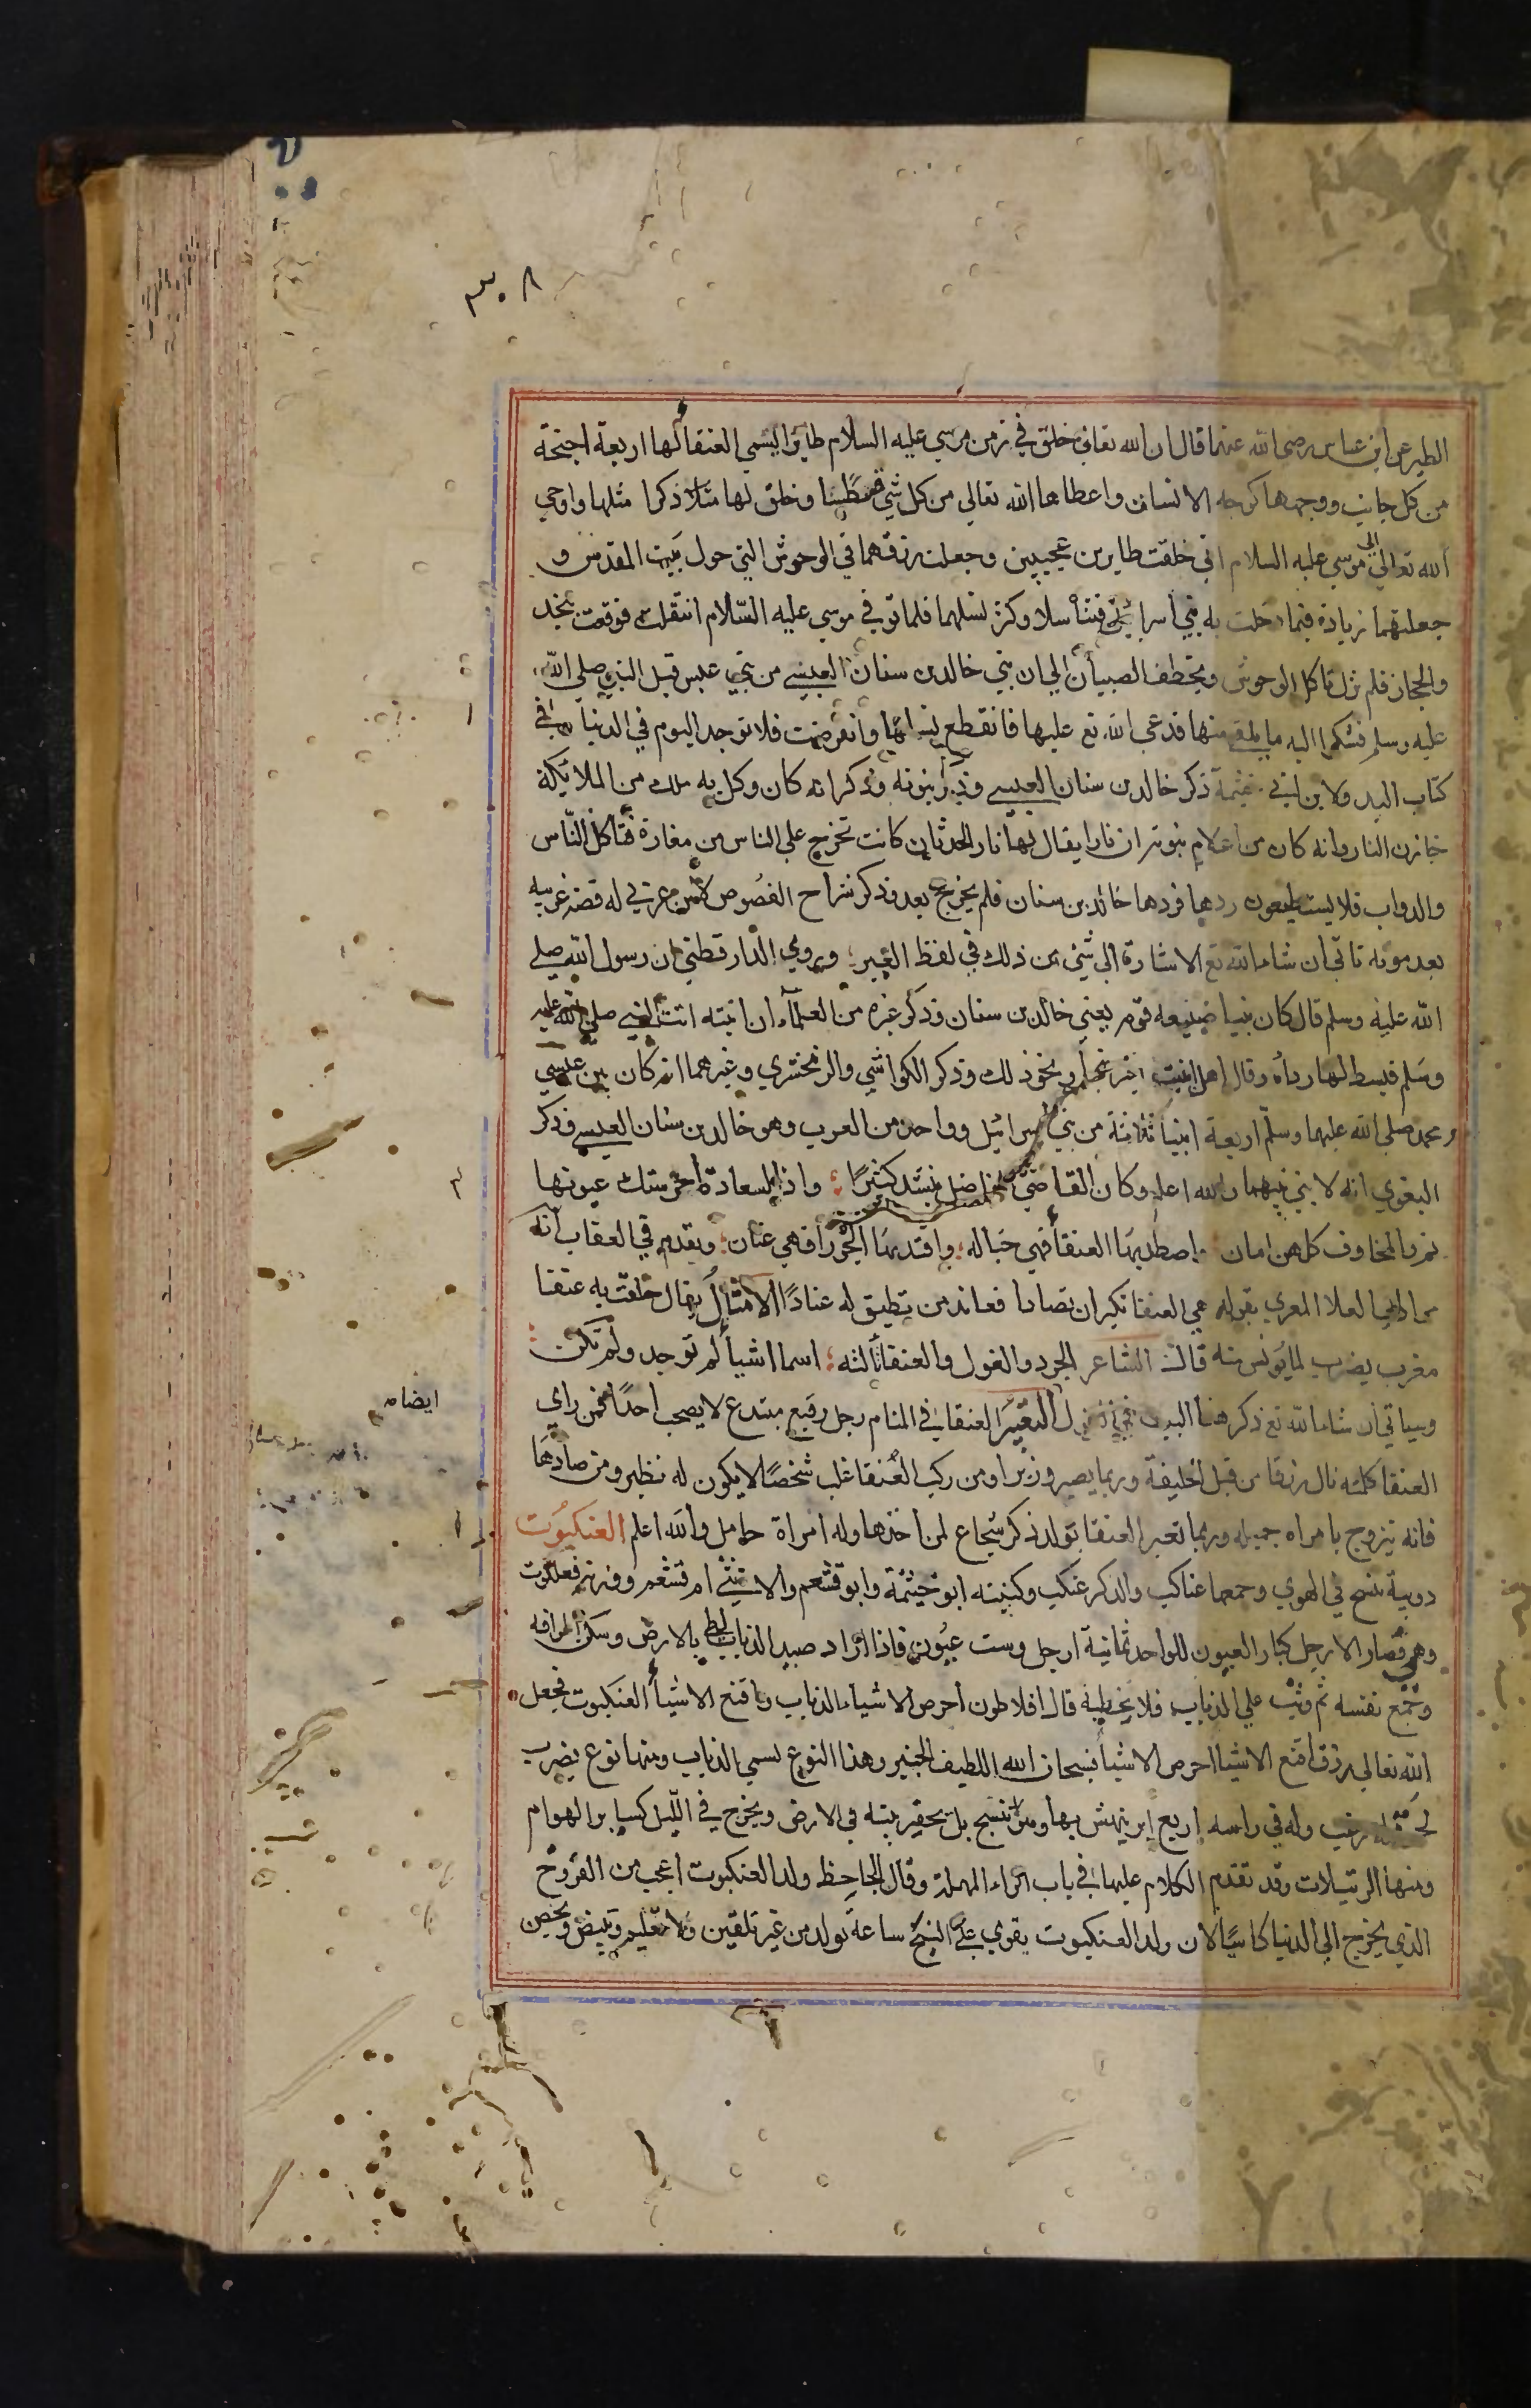 ٣٠٨
الطير عن ابن عباس رضي الله عنهما قال ان الله تعالى خلق في زمن موسي عليه السلام طايرا يسمي العنقا لها اربعة اجنحة
من كل جانب ووجهها كوجه الانسان واعطاها الله تعالي من كل شي قسطا وخلق لها ذكرا مثلها واوحي
الله تعالي الي موسي عليه السلام اني خلقت طايرين عجيبين وجعلت رزقهما في الوحوش التي حول بيت المقدس و
جعلتهما زيادة فيما به بني اسرائيل فتناسلا وكثر نسلهما فلما توفي موسي عليه السّلام انتقلت فوقعت بنجد
والحجاز فلم تزل تاكل الوحوش وتخطف الصبيان الي ان بني خالد بن سنان العبسي من بني عبس قبل النبي صلي الله
عليه وسلم فشكوا اليه ما يلقون منها فدعي الله تع عليها فانقطع نسلها وانقرضت فلا توجد اليوم في الدنيا وفي
كتاب البد ولابن ابي خيثمة ذكر خالد بن سنان العبسي وذكر نبوته وذكر انه كان وكل به ملك من الملايكة
خازن النار وانه كان من اعلام نبوته ان نارا يقال لها نار الحدثان كانت تخرج علي الناس من مغارة فتاكل النّاس
والدواب فلا يستطيعون ردها فردها خالد بن سنان فلم يخرج بعد وذكر شراح الفصُوص لابن عربي له قصة غريبه
بعد موته تاتي ان شاء الله تع الاشارة الي شئ من ذلك في لفظ العير ؛ وروي الدارقطني ان رسول الله صلي
الله عليه وسلم قال كان نبيا ضيعه قومه يعني خالد بن سنان وذكر غيره من العلمآء ان ابنته اتت النبي صلي الله عليه
وسَلم فبسط لها رداه وقال اهلا بنت خير نبي او نحو ذلك وذكر الكواشي والزمخشري وغيرهما انه كان بين عيسي
ومحمد صلي الله عليهما وسلّم اربعة انبيا ثلاثة من بني اسرائيل وواحد من العرب وهو خالد بن سنان العبسي وذكر
البغوي انه لا نبي بينهما والله اعلم وكان القاضي الفاضل ينشد كثيرًا ؛ واذا السعادة احرستك عيونها
نم فالمخاوف كلهن امان واصطد بها العنقا فهي حباله ؛ واقتد بها الجوزا فهي عنان ؛ وتقدم في العقاب انه
من العلا المعري بقوله هي العنقا تكبر ان تصادا فعاند من تطيق له عنادًا الامثال يقال حلقت به عنقا
مغرب يضرب لما يؤنس منه قالت الشاعر الجود والغول والعنقا ثالثه ؛ اسما اشيا لم توجد ولم تكن ؛
وسياتي ان شاء الله تع ذكر هذا البيت في الغول التعبير العنقا في المنام رجل رفيع مبتدع لا يصحب احدًا فمن راي
العنقا كلمته نال رزقا من قبل الخليفة وربما يصير وزيرا ومن ركب العُنقا غلب شخصًا لا يكون له نظير ومن صادها
فانه يتزوج بامراه جميله وربما تعبر العنقا بولد ذكر شجاع لمن اخذها وله امراة حامل والله اعلم العنكبُوت
دويبة تنسج في الهوي وجمعها عناكب والذكر عنكب وكنيته ابو خيثمة وابو قشعم والانثي ام قشعم ووزنه فعللوت
وهي قصار الارجل كبار العيون للواحد ثمانية ارجل وست عيُون فاذا اراد صيد الذباب لطي بالارض وسكن اطرافه
وجمع نفسه ثم وثب علي الذباب فلا يخطيه قال افلاطون احرص الاشياء الذباب واقنع الاشيا العنكبوت فجعل
الله تعالي رزق اقنع الاشيا احرص الاشيا فسبحان الله اللطيف الخبير وهذا النوع يسمي الذباب ومنها نوع يضرب
زغب وله في راسه اربع ابر ينهش بها وهو لا ينسج بل يحفر بيته في الارض ويخرج في اللّيل كساير الهوام
ومنها الرتيلات وقد تقدم الكلام عليها في باب الراء المهملة وقال الجاحِظ ولد العنكبوت اعجب من الفروج
الذي يخرج الي الدنيا كاسيًا لان ولد العنكبوت يقوي علي النسج ساعة يولد من غير تلقين ولا تعليم ويبيض ويحضن
ايضاه